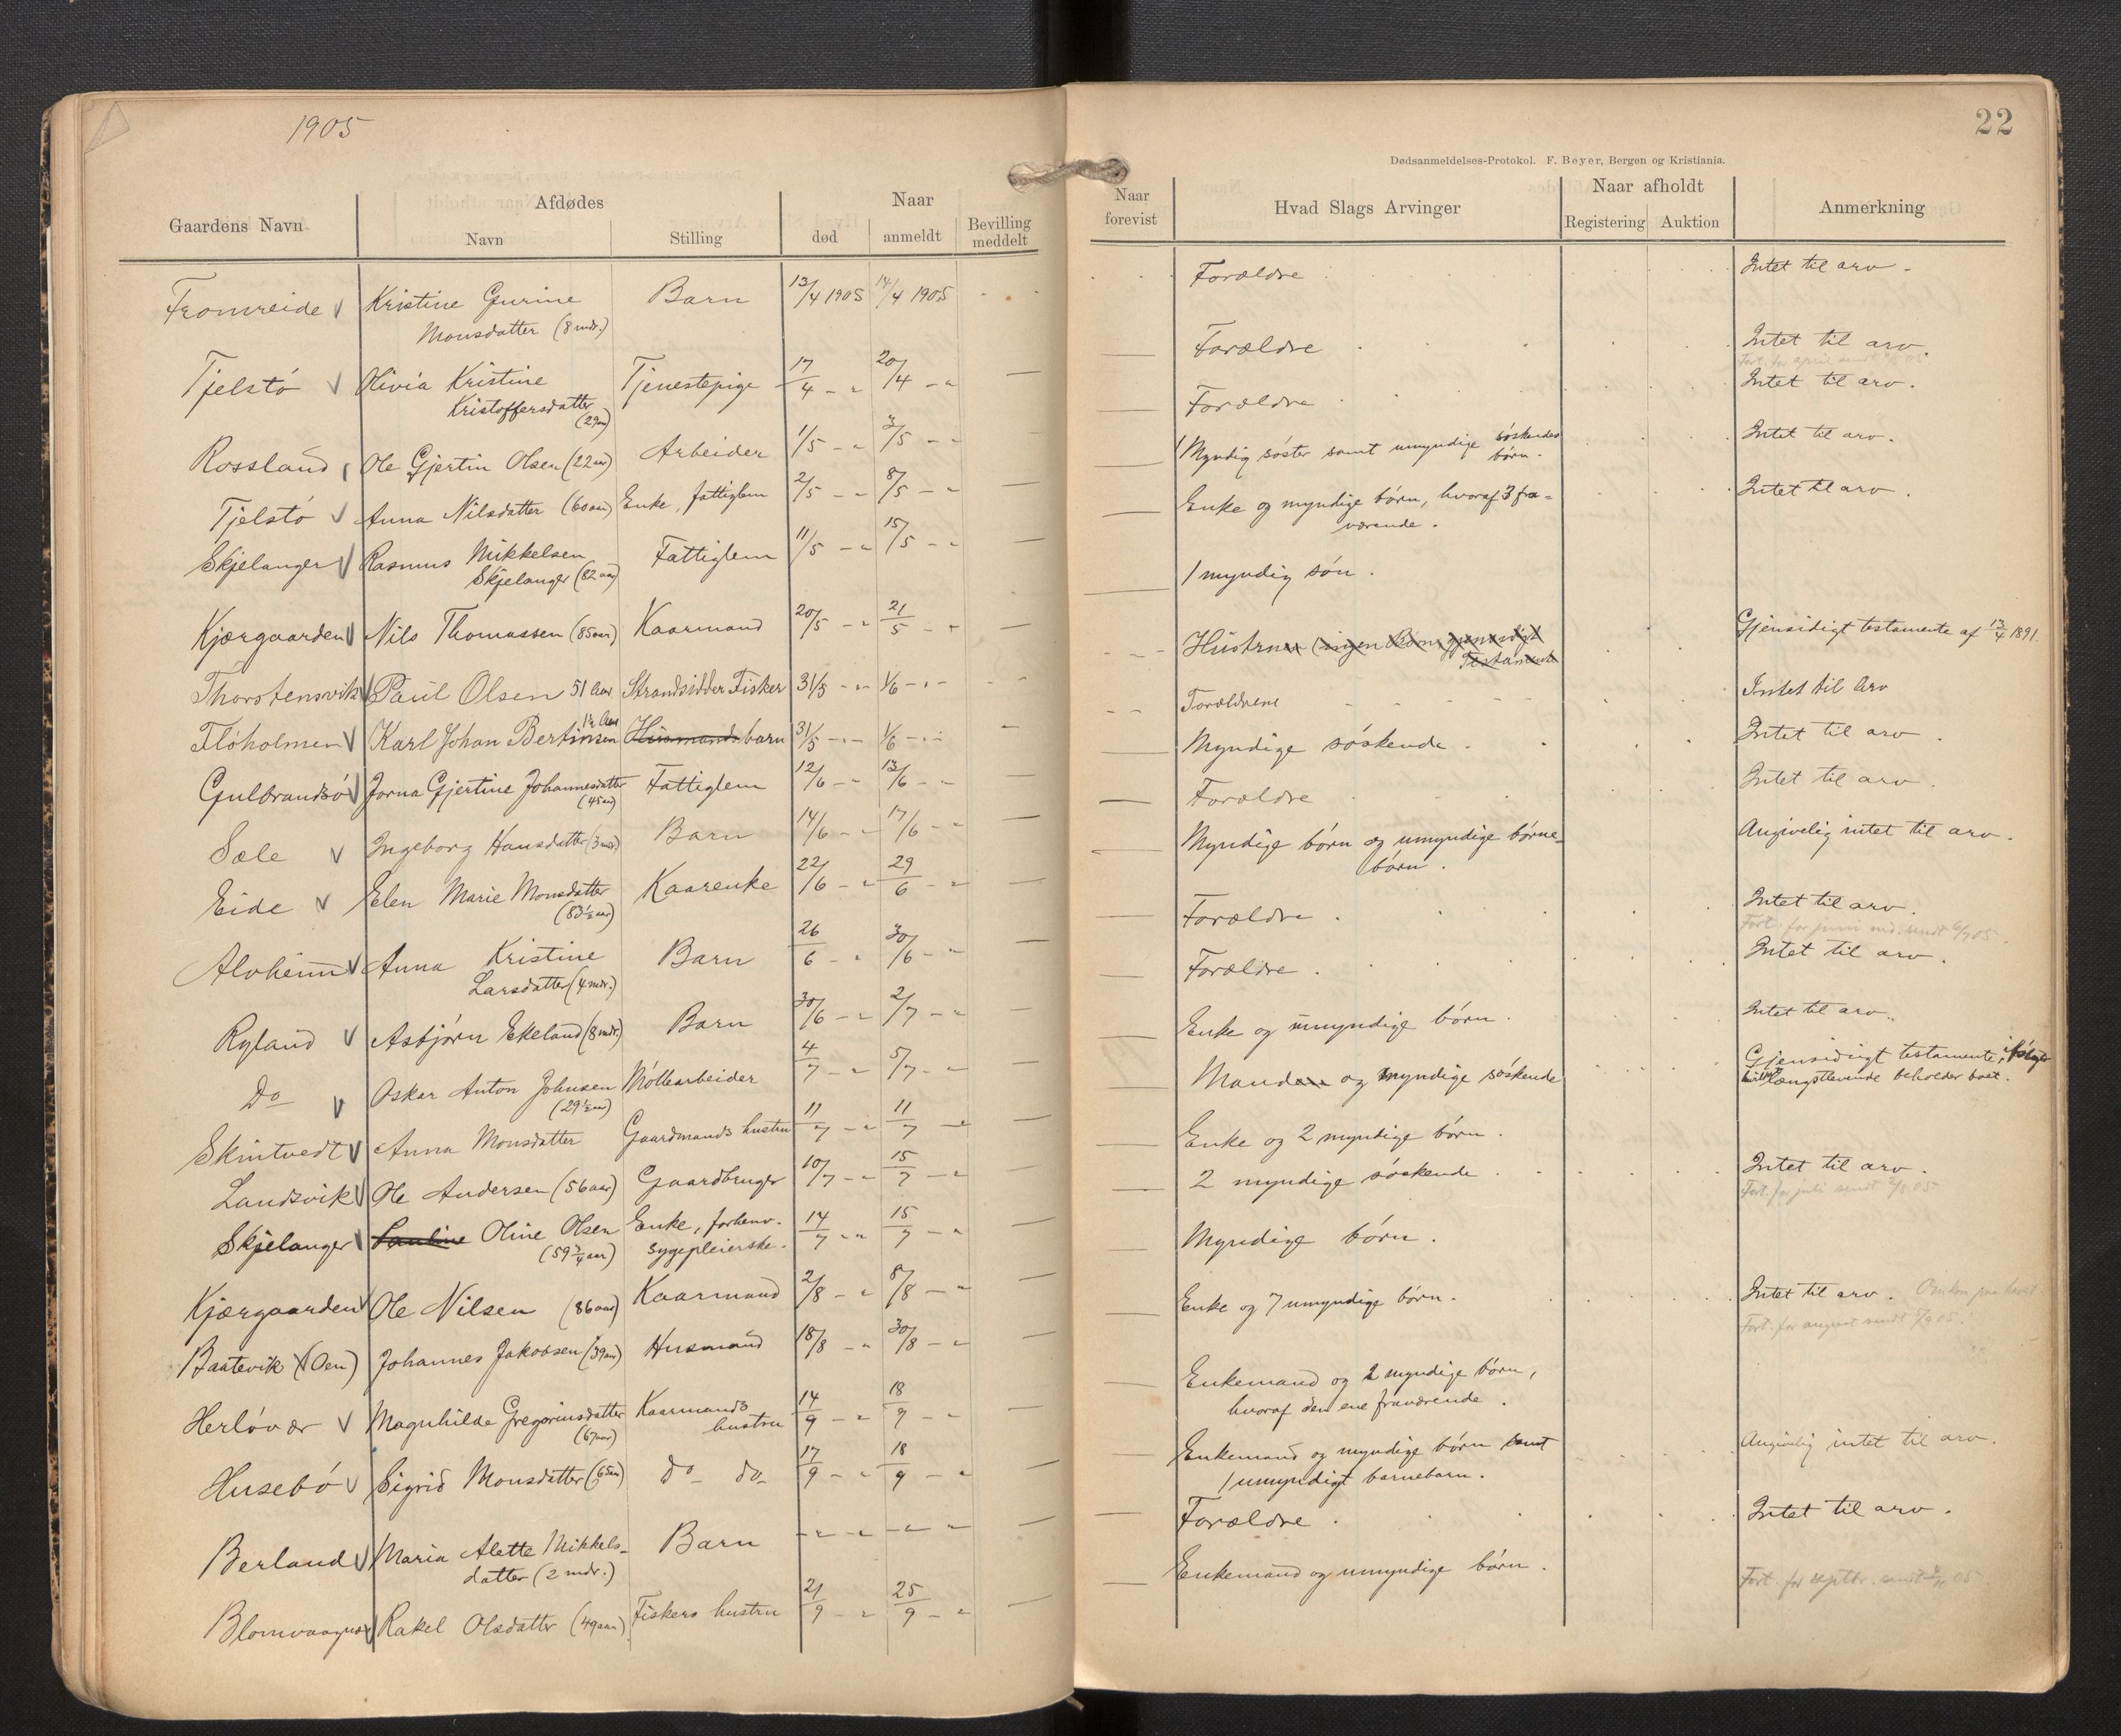 1905
22
Dødsanmeldelses-Protokol. F. Beyer, Bergen og Kristiania.
Gaardens Navn | Afdødes | Naar | Bevilling meddelt | Naar forevist | Hvad Slags Arvinger | Naar afholdt | Anmerkning
Navn | Stilling | død | anmeldt | Registering | Auktion
Fromreide | Kristine Gurine | Barn | 13/4 1905 | 14/4 1905 | Forældre | Intet til arv.
Monsdatter (8 mdr.)
Tjelstö | Olivia Kristine | Tjenestepige | 17/4 - " | 20/4 - " | Forældre | Intet til arv.
Kristoffersdatter | Fort. for april sendt 05
(29 aar)
Rossland | Ole Gjertin Olsen (22 aar) | Arbeider | 1/5 - " | 3/5 - " | Forældre | Intet til arv.
Tjelstö | Anna Nilsdatter (60 aar) | Enke, fattiglem | 2/5 - " | 8/5 - " | 1 Myndig söster samt umyndige söskendes | Intet til arv.
börn.
Skjelanger | Rasmus Mikkelsen | Fattiglem | 11/5 - " | 15/5 - " | Enke og myndige börn, hvoraf 3 fra= | Intet til arv.
Skjelanger (82 aar) | værende.
Kjærgaarden | Nils Thomassen (85 aar) | Kaarmand | 20/5 - " | 21/5 - " | 1 myndig sön.
Thorstensvik | Paul Olsen 51 Aar | Strandsidder Fisker | 31/5 - " - | 1/6 - " - | Hustruen (ingen Börn, gjensidigt | Gjensidigt testamente af 13/4 1891.
Testamente
Flöholmen | Karl Johan Bertinsen | Husmands barn | 31/5 - " - | 1/6 - " - | Forældrene | Intet til Arv
1½ Aar
Gulbrandsö | Jorna Gjertine Johannesdatter | Fattiglem | 12/6 - " | 13/6 - " | Myndige söskende. | Intet til arv.
(45 aar)
Sæle | Ingeborg Hansdatter (3 mdr) | Barn | 14/6 - " | 17/6 - " | Forældre | Intet til arv.
Eide | Elen Marie Monsdatter | Kaarenke | 22/6 - " | 29/6 - " | Myndige börn og umyndige börne- | Angivelig intet til arv.
(83½ aar) | börn.
Alvheim | Anna Kristine | Barn | 26/6 - " | 30/6 - " | Forældre. | Intet til arv.
Larsdatter (4 mdr.) | Fort. for juni md. sendt 6/7 05.
Ryland | Asbjörn Ekeland (8 mdr.) | Barn | 30/6 - " | 2/7 - " | Forældre. | Intet til arv.
Do | Oskar Anton Johnsen | Möllearbeider | 4/7 - " | 5/7 - " | Enke og umyndige börn. | Intet til arv.
(29½ aar)
Skintvedt | Anna Monsdatter | Gaardmands hustru | 11/7 - " | 11/7 - " | Manden og myndige söskende | Gjensidigt testamente, ifölge
hvilket længstlevende beholder boet.
Landsvik | Ole Andersen (56 aar) | Gaardbruger | 10/7 - " | 15/7 - " | Enke og 2 myndige börn.
Skjelanger | Pauline Oline Olsen | Enke, forhenv. | 14/7 - " | 15/7 - " | 2 myndige söskende | Intet til arv.
(59¾ aar) | sygepleierske. | Fort. for juli sendt 2/8 05
Kjærgaarden | Ole Nilsen (86 aar) | Kaarmand | 2/8 - " | 8/8 - " | Myndige börn.
Baatevik (Oen) | Johannes Jakobsen (39 aar) | Husmand | 18/8 - " | 30/8 - " | Enke og 7 umyndige börn. | Intet til arv.
Fort. for august sendt 5/9 05.
Herlövær | Magnhilde Gregoriusdatter | Kaarmands | 14/9 - " | 18/9 - " | Enkemand og 2 myndige börn,
(67 aar) | hustru | hvoraf den ene fraværende.
Husebö | Sigrid Monsdatter (65 aar) | do do | 17/9 - " | 18/9 - " | Enkemand og myndige börn samt | Angivelig intet til arv.
1 umyndigt barnebarn.
Berland | Maria Alette Mikkels- | Barn | - " - " | - " - " | Forældre. | Intet til arv.
datter (2 mdr.)
Blomvaagnæs | Rakel Olsdatter (49 aar) | Fiskers hustru | 21/9 - " | 25/9 - " | Enkemand og umyndige börn. | Fort. for septbr. sendt 05